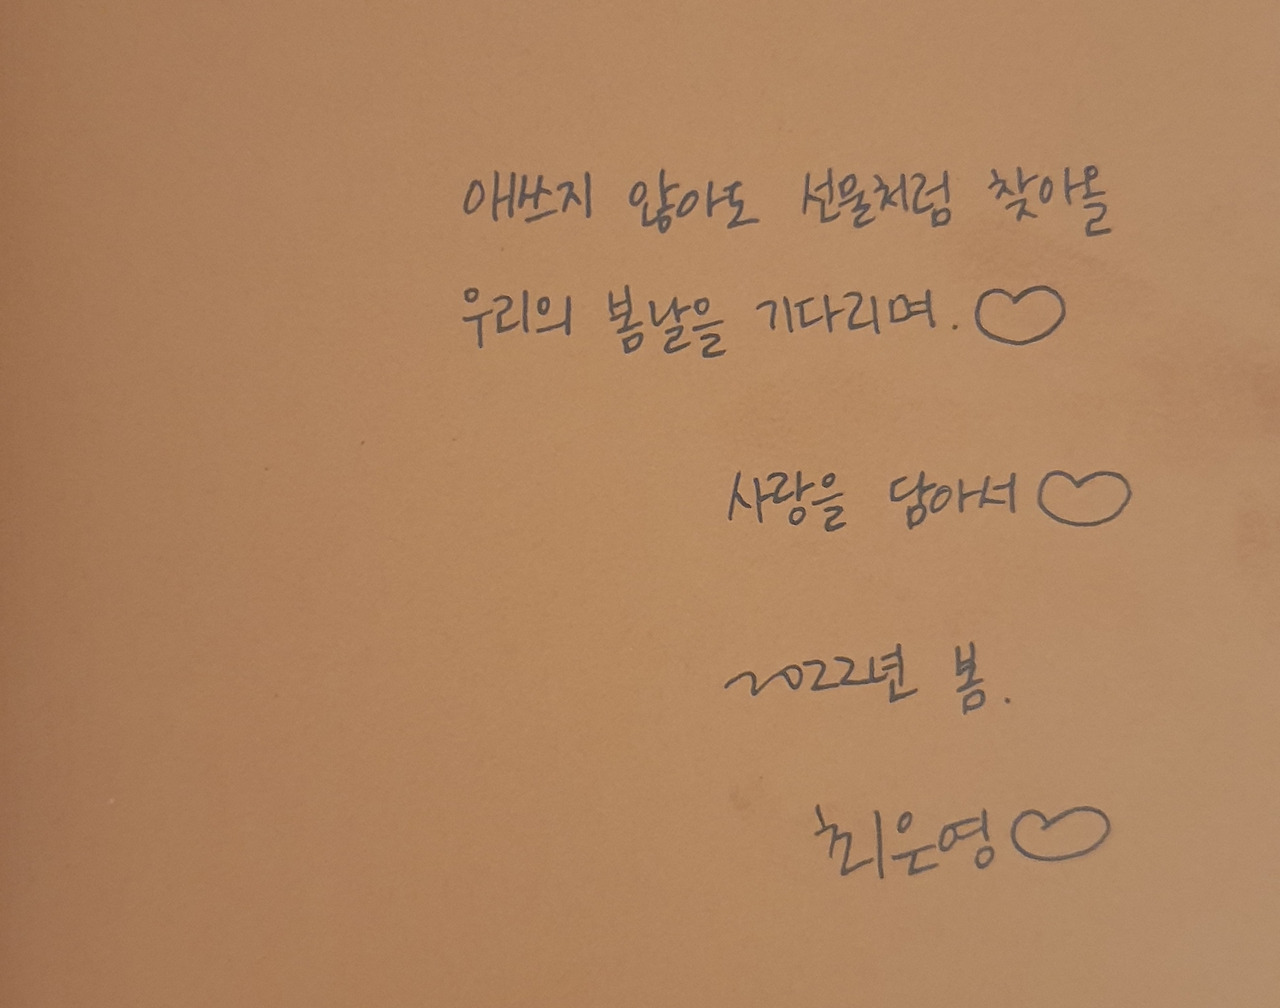 애쓰지 않아도 선물처럼 찾아올
우리의 봄날을 기다리며.♡
사랑을 담아서♡
2022년 봄.
최은영♡